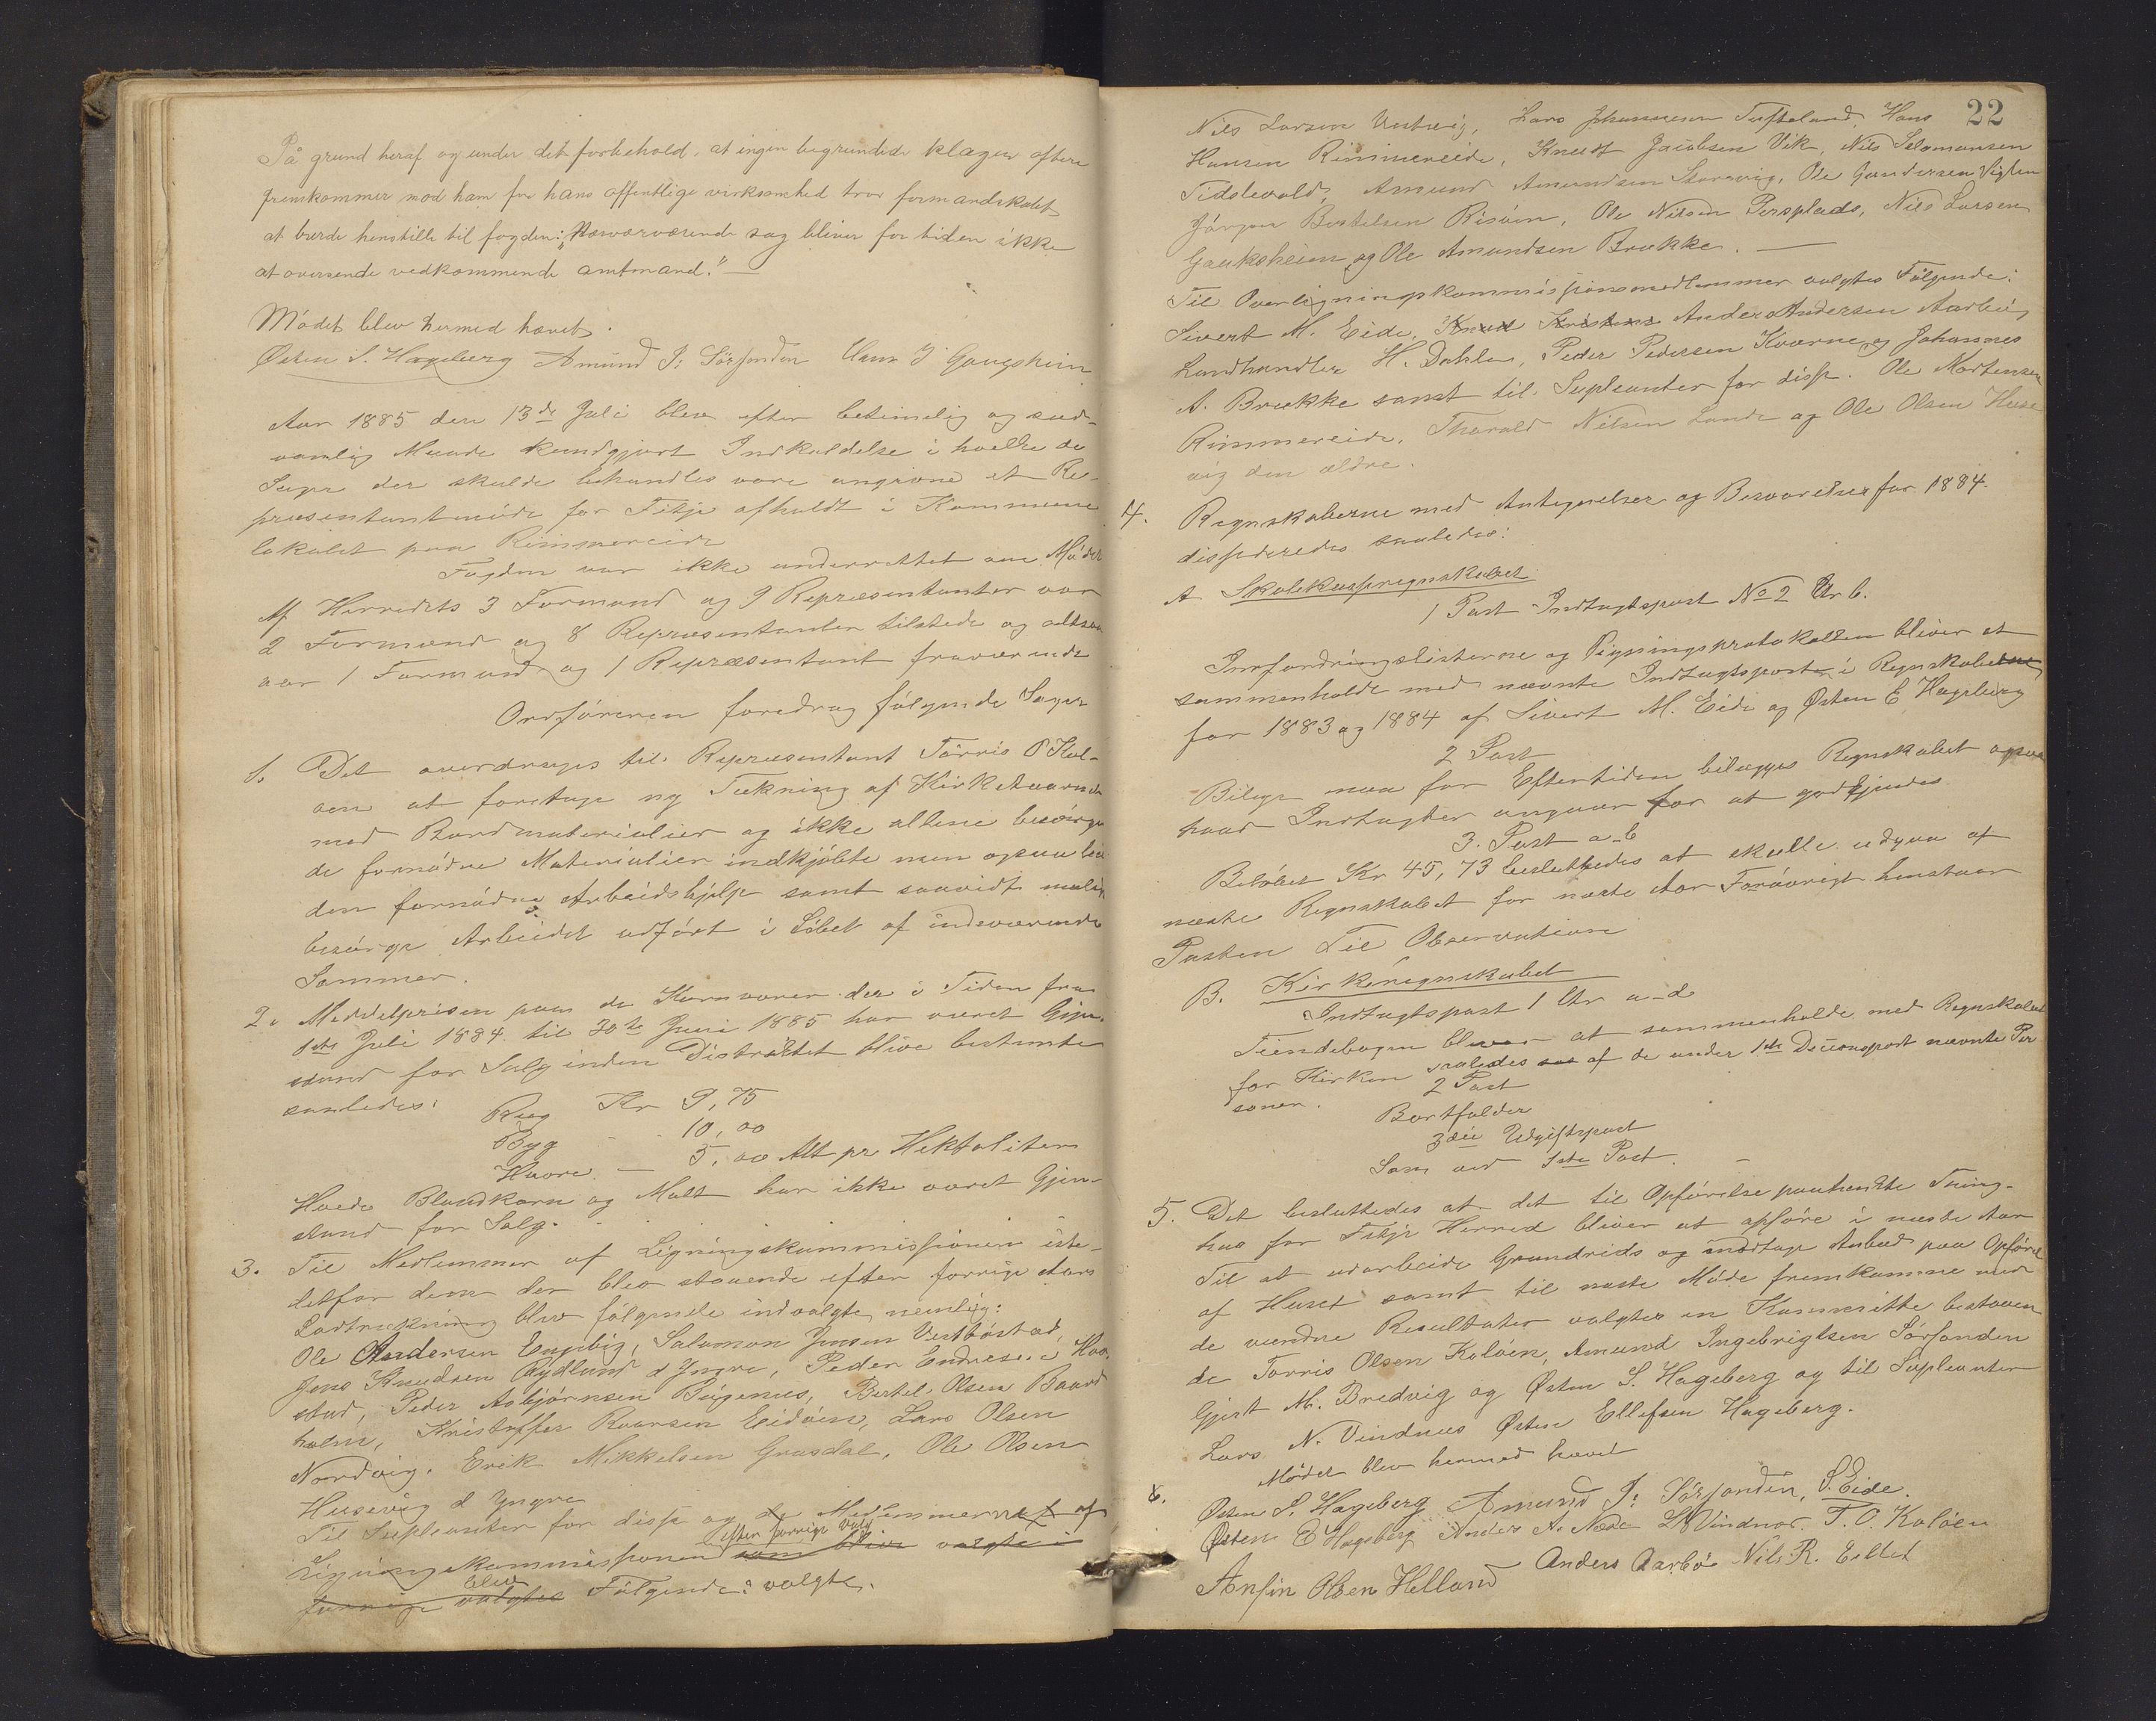 På grund heraf og under det forbehold, at ingen begrundede klager oftere
fremkommer mod ham for hans offentlige virksomhed tror formandskabet
at burde henstille til fogden: "Nærværende sag bliver for tiden ikke
at oversende vedkommende amtmand." —
Mödet blev hermed hævet.
Østen S. Hageberg Amund I. Sörfonden Hans J Gaugsheim
Aar 1885 den 13de Juli blev efter betimelig og sæd-
vanlig Maade kundgjort Indkaldelse i hvilke de
Sager der skulde behandles vare angivne et Re-
præsentantmöde for Fitje afholdt i Kommune
lokalet paa Rimmereide
Fogden var ikke underrettet om Mödet
Af Herredets 3 Formænd og 9 Repræsentanter var
2 Formænd og 8 Repræsentanter tilstede og altsaa
var 1 Formand og 1 Repræsentant fraværende
Ordföreren foredrog fölgende Sager
1. Det overdrages til Repræsentant Törris O Kol-
öen at foretage ny Tækning af Kirketaarnet
med Bordmaterialier og ikke allene besörge
de fornödne Materialier indkjöbte men ogsaa leie
den fornödne Arbeidshjelp samt saavidt mulig
besörge Arbeidet udfört i Löbet af indeværende
Sommer.
2. Middelprisen paa de Kornvarer der i Tiden fra
1ste Juli 1884 til 30te Juni 1885 har været Gjen-
stand for Salg inden Distriktet blive bestemte
saaledes:
Rug Kr 9,75
Byg - 10,00
Havre — 5,00 Alt pr Hektoliter
Hvede Blandkorn og Malt har ikke været Gjen-
stand for Salg.
3. Til Medlemmer af Ligningskommissionen iste-
detfor dem der blev staaende efter forrige Aars
Lodtrækning blev fölgende indvalgte nemlig:
Ole Andersen Engevig, Salamon Jensen Vestböstad,
Jens Knudsen Rydland d Yngre, Peder Endresen Hav-
stad, Peder Asbjörnsen Bögenes, Bertel Olsen Baard
holm, Kristoffer Roarsen Eidöien, Lars Olsen
Nordvig, Erik Mikkelsen Grasdal, Ole Olsen
Husevåg d Yngre
Til Supleanter for disse og de Medlemmer af
efter forrige Valg
Ligningskommissionen som blive valgte i
blev
forrige valgtes Fölgende: valgte.
22
Nils Larsen Vestvig, Lars Johannesen Tufteland, Hans
Hansen Rimmereide, Knut Jacobsen Vik, Nils Salomonsen
Tislevold, Amund Amundsen Skorevig, Ole Gundersen
Jörgen Bertelsen Risöien, Ole Nilsen Persplads, Nils Larsen
Gauksheim og Ole Amundsen Brække. —
Til Overligningskommissionsmedlemmer valgtes Fölgende:
Sivert M. Eide, Knud Kristens Ander Andersen Aarbö,
Landhandler H. Dahle, Peder Pedersen Kværne, og Johannes
A. Brække samt til Supleanter for disse. Ole Mortensen
Rimmereide, Thorvald Nilsen Lande og Ole Olsen Huse
vig den ældre.
4. Regnskaberne med Antegnelser og Besvarelser for 1884
dissideredes saaledes:
A Skolekasseregnskabet
1 Post Indtægtspost No 2 Ltr b.
Innfordringslisterne og Ligningsprotokollen bliver at
sammenholde med nævnte Indtægtsposter i Regnskaberne
for 1883 og 1884 af Sivert M. Eide og Østen E Hageberg
2 Post
Bilage maa for Eftertiden bilægges Regnskabet ogsaa
hvad Indtægter angaar for at godkjendes
3. Post a-b
Belöbet Kr 45,73 besluttedes at skulle udgaa af
næste Regnskabet for næste Aar Foröwrigt henstaar
Posten Til Observation
B. Kirkeregnskabet
Indtægtspost 1 Ltr a-d
Tiendebogen bliver at sammenholde med Regnskabet
for Kirken saaledes af de under 1ste Decisionspost nævnte Per
soner.
2 Post
Bortfalder
3die Udgiftspost
Som ved 1ste Post. —
5. Det besluttedes at det til Opförelse paatænkte Ting-
hus for Fitje Herred bliver at opföre i næste Aar
Til at udarbeide Grundrids og modtage Anbud paa Opförel
af Huset samt til næste Möde fremkomme med
de vundne Resultater valgtes en Kommitte bestaaen
de Torris Olsen Kolöen, Amund Ingebrigtsen Sörfonden
Gjert M. Bredvig og Østen S. Hageberg og til Supleanter
Lars N. Vindnæs Østen Ellefsen Hageberg.
Mödet blev hermed hævet
6.
Østen S. Hageberg Amund I. Sörfonden, S. Eide.
Østen E Hageberg Anders A. Næse L N Vindnes. T. O. Kolöen
Anfin Olsen Helland Anders Aarbö Nils R.